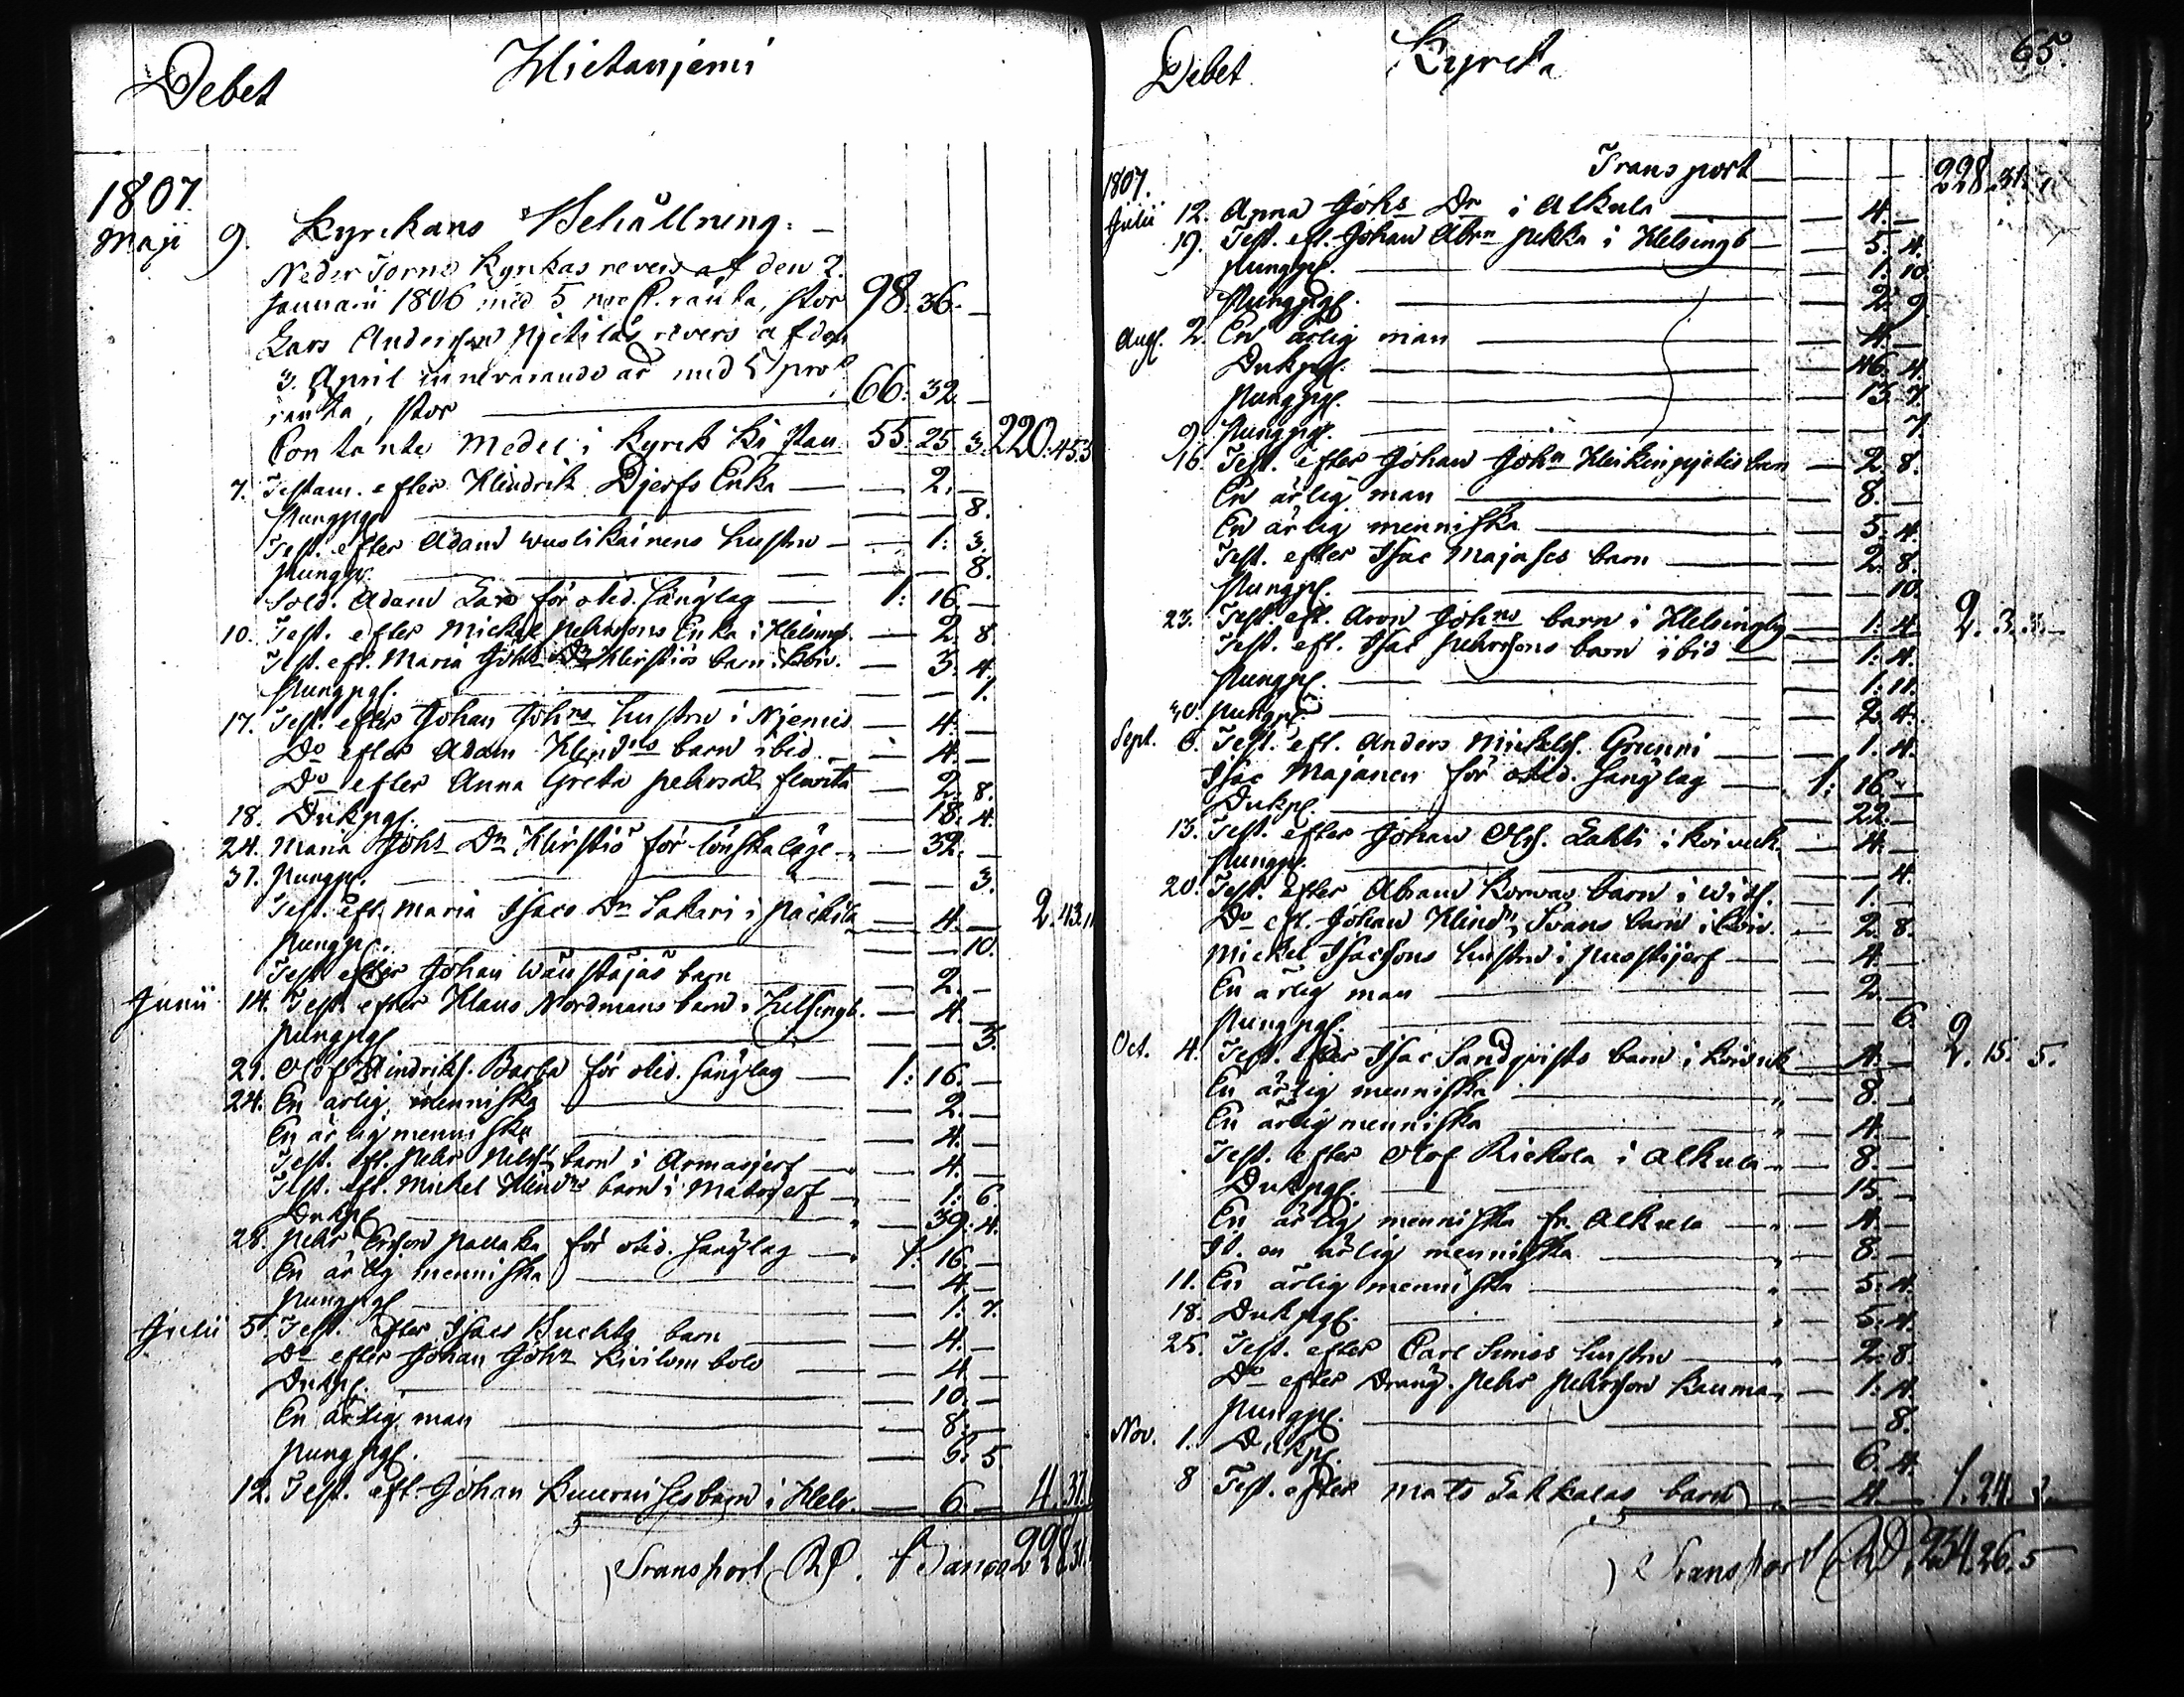 Debet Hietaniemi
1807.
Maji 9. Kyrckans Behållning: —
Neder Torneå Kyrkas revers af den 2.
Januarii 1806 med 5 proC. ränta, stor 98. 36. —
Lars Anderson Njetilas revers af den
3. April innevarande år med 5 proC
ränta, stor — 66. 32. —
Contante Medel i Kyrck Kistan 55. 25. 3. 220. 45. 3
7. Testam. efter Hindrik Djerfs Enka — 2. —
Pungpgr — 8.
Test. efter Adam Wuolikainens hustru — 1: 3.
Pungpr. — 8.
Sold. Adam Lars för otid. sänglag — 1: 16. —
10. Test. efter Mickel Pehrssons Enka i Helsingb. — 2. 8.
Test. eft. Maria Johs Dr Heistiös barn i Koiv. — 5. 4.
Pungpgr. — 1.
17. Test. efter Johan Johns hustru i Njemis — 4. —
Do efter Adam Hindrs barn ibid. — 4. —
Do efter Anna Greta Pehrsdr — 2. 8.
18. Dukpgr. — 18. 4.
24. Maria Johs Dr Heistiö för lönskaläge — 32. —
31. Pungpr. — 3.
Test. eft. Maria Isacs Dr Lakari i Päckila — 4. — 2. 43. 11
Pungpr. — 10.
Test. efter Johan Wänstäjäs barn — 2. —
Junii 14. Test. efter Klaus Nordmans barn i Helsingb. — 4. —
Pungpgr — 3.
21. Olof Hindrikss. Barba för otid. sänglag — 1: 16. —
24. En ärlig menniska — 2. —
En ärlig menniska — 4. —
Test. eft. Pehr Nilss. barn i Armasjerf — 4. —
Test. eft. Mickel Hindrs barn i Matojerf — 1: 6.
Dukpr — 39. 4.
28. Pehr Ersson Pallaka för otid. sänglag — 1: 16. —
En ärlig menniska — 4. —
Pungpgr — 1. 7.
Julii 5. Test. efter Isacs Huchta barn — 4. —
Do efter Johan Johs Kivilombolo — 4 —
Dukpr. — 10. —
En ärlig man — 8. —
Pungpgr. — 6. 5.
12. Test. eft. Johan Kuurnises barn i Hels. — 6. — 4. 37.
Transport Rd. 228 31.
Debet. Kyrcka 65.
Transport — 228. 31.
1807.
Julii 12. Anna Johs Dr i Alkula — 4. —
19. Test. eft. Johan Abrn Pekka i Helsingb — 5. 4.
Pungpr. — 1. 10.
Pungpgr. — 2. 9
Aug. 2. En ärlig man — 4. —
Dukpgr. — 46. 4.
Pungpgr. — 13. 7.
9. Pungpgr. — 7.
16. Test. efter Johan Johs Heikinpjetis barn — 2. 8.
En ärlig man — 8. —
En ärlig menniska — 5. 4.
Test. efter Isac Majases barn — 2. 8.
Pungpr. — 10.
23. Test. eft. Aron Johns barn i Helsingby — 1: 4. 2. 3. 3. —
Test. eft. Isac Pehrsons barn ibid — 1: 4.
Pungpr. — 1. 11.
30. Pungpr. — 2. 4.
Sept. 6. Test. eft. Anders Mickelss. Grunni — 1. 4.
Isac Majanen för otid. sänglag — 1: 16. —
Dukpr. — 22. —
13. Test. efter Johan Olss. Lahti i Koivuk. — 4. —
Pungpr. — 4.
20. Test. efter Abram Korwas barn i Wits. — 1. —
Do eft. Johan Hindrs Svans barn i Koiv. — 2. 8.
Mickel Isacsons hustru i Puostijerf — 4. —
En ärlig man — 2. —
Pungpgr. — 6.
Oct. 4. Test. efter Isac Sandqvists barn i Koivuk — 4. — 2. 15. 5.
En ärlig menniska — 8. —
En ärlig menniska — 4. —
Test. efter Olof Rickola i Alkula — 8. —
Dukpgr. — 15. —
En ärlig menniska fr. Alkula — 4. —
It. en ärlig menniska — 8. —
11. En ärlig menniska — 5. 4.
18. Dukpgr. — 5. 4.
25. Test. efter Carl Simos hustru — 2. 8.
Do efter Dräng. Pehr Pehrson Rauma — 1. 4.
Pungpr. — 8.
Nov. 1. Dukpr. — 6. 4.
8 Test. efter Mats Lakkalas barn — 4. — 1. 24. 2.
Transport Rd. 234. 26. 5